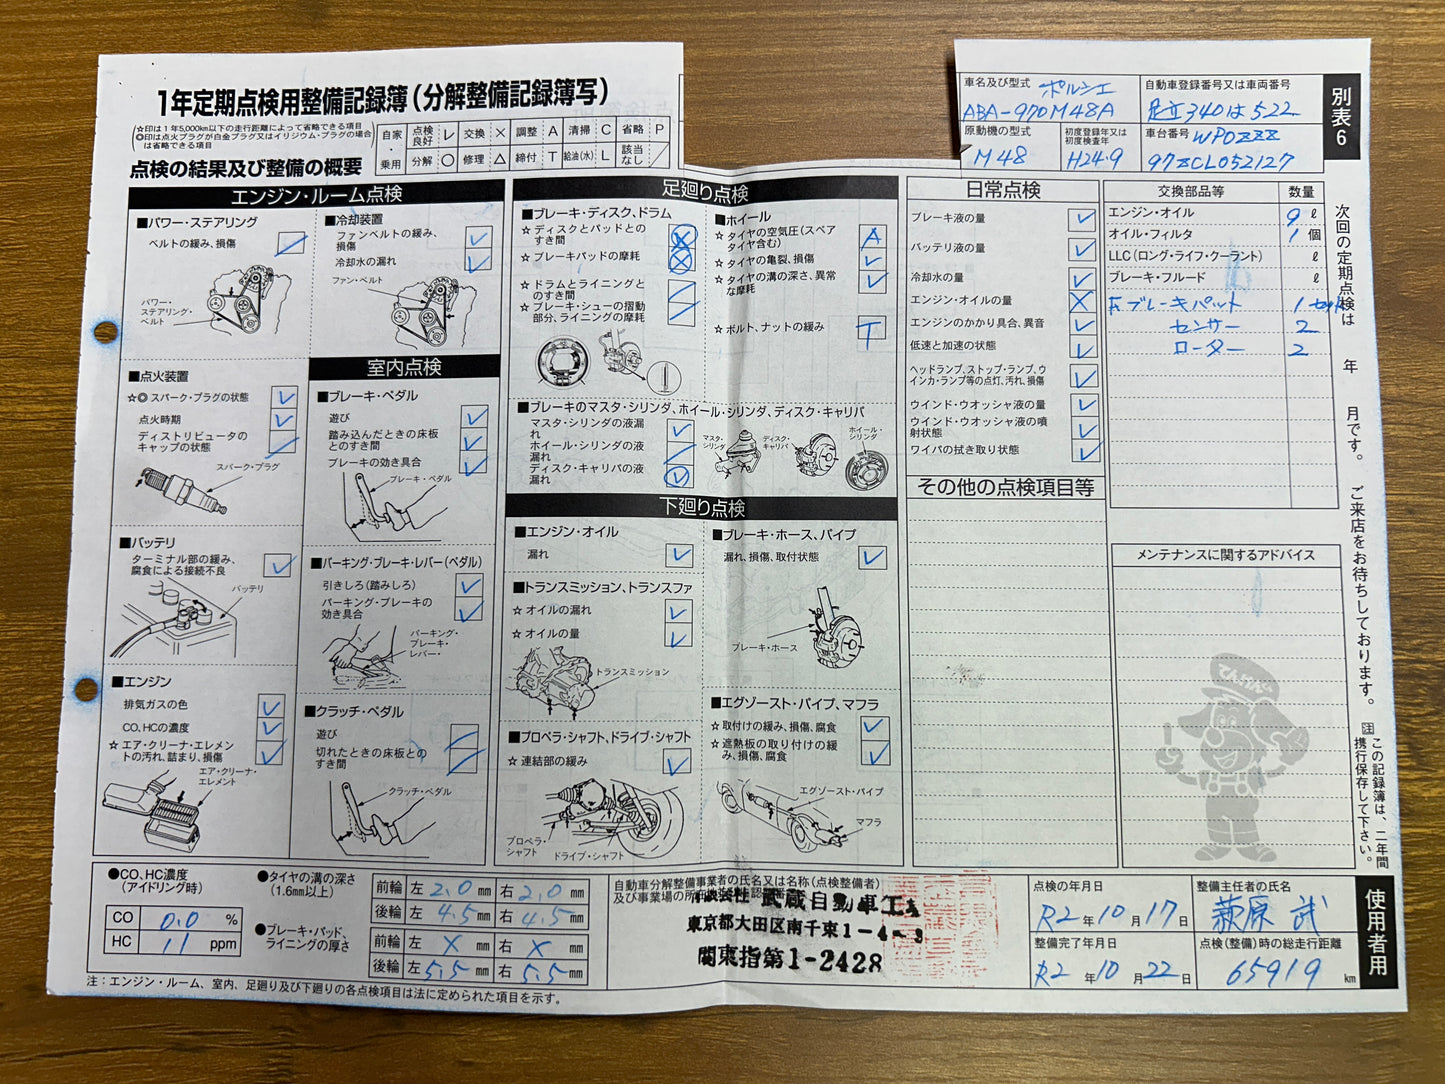 1年定期点検用整備記録簿(分解整備記録簿写)
☆印は1年5,000km以下の走行距離によって省略できる項目
◎印は点火プラグが白金プラグ又はイリジウム・プラグの場合は省略できる項目
自家・乗用
点検良好 レ 交換 × 調整 A 清掃 C 省略 P
分解 ○ 修理 △ 締付 T 給油(水) L 該当なし ╱
車名及び型式 ポルシェ
ABA-970M48A
自動車登録番号又は車両番号
足立340は522
原動機の型式
M48
初度登録年又は初度検査年
H24.9
車台番号 WP0ZZZ
97ZCL052127
別表6
点検の結果及び整備の概要
エンジン・ルーム点検
■パワー・ステアリング
ベルトの緩み、損傷
パワー・ステアリング・ベルト
■冷却装置
ファンベルトの緩み、損傷
冷却水の漏れ
ファン・ベルト
■点火装置
☆◎ スパーク・プラグの状態
点火時期
ディストリビュータのキャップの状態
スパーク・プラグ
■バッテリ
ターミナル部の緩み、腐食による接続不良
バッテリ
■エンジン
排気ガスの色
CO、HCの濃度
☆ エア・クリーナ・エレメントの汚れ、詰まり、損傷
エア・クリーナ・エレメント
室内点検
■ブレーキ・ペダル
遊び
踏み込んだときの床板とのすき間
ブレーキの効き具合
ブレーキ・ペダル
■パーキング・ブレーキ・レバー(ペダル)
引きしろ(踏みしろ)
パーキング・ブレーキの効き具合
パーキング・ブレーキ・レバー・
■クラッチ・ペダル
遊び
切れたときの床板とのすき間
クラッチ・ペダル
足廻り点検
■ブレーキ・ディスク、ドラム
☆ ディスクとパッドとのすき間
☆ ブレーキパッドの摩耗
☆ ドラムとライニングとのすき間
☆ ブレーキ・シューの摺動部分、ライニングの摩耗
■ホイール
☆ タイヤの空気圧(スペアタイヤ含む) A
☆ タイヤの亀裂、損傷
☆ タイヤの溝の深さ、異常な摩耗
☆ ボルト、ナットの緩み T
■ブレーキのマスタ・シリンダ、ホイール・シリンダ、ディスク・キャリパ
マスタ・シリンダの液漏れ
ホイール・シリンダの液漏れ
ディスク・キャリパの液漏れ
マスタ・シリンダ
ディスク・キャリパ
ホイール・シリンダ
下廻り点検
■エンジン・オイル
漏れ
■トランスミッション、トランスファ
☆ オイルの漏れ
☆ オイルの量
トランスミッション
■プロペラ・シャフト、ドライブ・シャフト
☆ 連結部の緩み
プロペラ・シャフト
ドライブ・シャフト
■ブレーキ・ホース、パイプ
漏れ、損傷、取付状態
ブレーキ・ホース
■エグゾースト・パイプ、マフラ
☆ 取付けの緩み、損傷、腐食
☆ 遮熱板の取り付けの緩み、損傷、腐食
エグゾースト・パイプ
マフラ
日常点検
ブレーキ液の量
バッテリ液の量
冷却水の量
エンジン・オイルの量
エンジンのかかり具合、異音
低速と加速の状態
ヘッドランプ、ストップ・ランプ、ウインカ・ランプ等の点灯、汚れ、損傷
ウインド・ウオッシャ液の量
ウインド・ウオッシャ液の噴射状態
ワイパの拭き取り状態
その他の点検項目等
交換部品等 数量
エンジン・オイル 9 ℓ
オイル・フィルタ 1 個
LLC(ロング・ライフ・クーラント) ℓ
ブレーキ・フルード ℓ
F.ブレーキパット 1セット
センサー 2
ローター 2
メンテナンスに関するアドバイス
てんけんくん
次回の定期点検は 年 月です。 ご来店をお待ちしております。
注 この記録簿は、二年間携行保存して下さい。
使用者用
●CO、HC濃度(アイドリング時)
CO 0.0 %
HC 11 ppm
●タイヤの溝の深さ(1.6mm以上)
前輪 左 2.0 mm 右 2.0 mm
後輪 左 4.5 mm 右 4.5 mm
●ブレーキ・パッド、ライニングの厚さ
前輪 左 × mm 右 × mm
後輪 左 5.5 mm 右 5.5 mm
自動車分解整備事業者の氏名又は名称(点検整備者)
及び事業場の所在地並びに認証番号
有限会社 武蔵自動車工
東京都大田区南千束1-4-3
関東指第1-2428
点検の年月日
R2年10月17日
整備主任者の氏名
萩原 武
整備完了年月日
R2年10月22日
点検(整備)時の総走行距離
65919 km
注:エンジン・ルーム、室内、足廻り及び下廻りの各点検項目は法に定められた項目を示す。